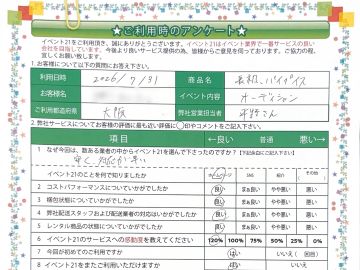 ★ご利用時のアンケート★
イベント21をご利用頂き、誠にありがとうございます。イベント21はイベント業界で一番サービスの良い
会社を目指しています。今後より良いサービス提供の為、皆様からご意見を伺っております。ご協力の程、
宜しくお願い致します。
1. お客様について以下の質問にお答え下さい。
ご利用日時 2026/7/31 商品名
お客様名 イベント内容 オーディション
ご利用都道府県 大阪 弊社営業担当者
2. 弊社サービスについてお客様の評価に最も近い評価に○印やコメントをご記入下さい。
項目 ←良い 普通 悪い→
1 なぜ今回、数ある業者の中からイベント21を選んで下さったのですか?
安く、対応が早い
イベント21のことを何で知りましたか SNS 紹介 その他
2 コストパフォーマンスについていかがでしたか 良い まぁ良い やや悪い 悪い
3 梱包状態についていかがでしたか 良い まぁ良い やや悪い 悪い
4 弊社配送スタッフおよび配送業者の対応はいかがでしたか 良い まぁ良い やや悪い 悪い
5 レンタル商品の状態についていかがでしたか 良い まぁ良い やや悪い 悪い
6 イベント21のサービスへの感動度を教えてください 120% 100% 75% 50% 25% 0%
7 今回が初めてのご利用ですか はい いいえ( 回目)
8 イベント21をまたご利用いただけますか はい いいえ